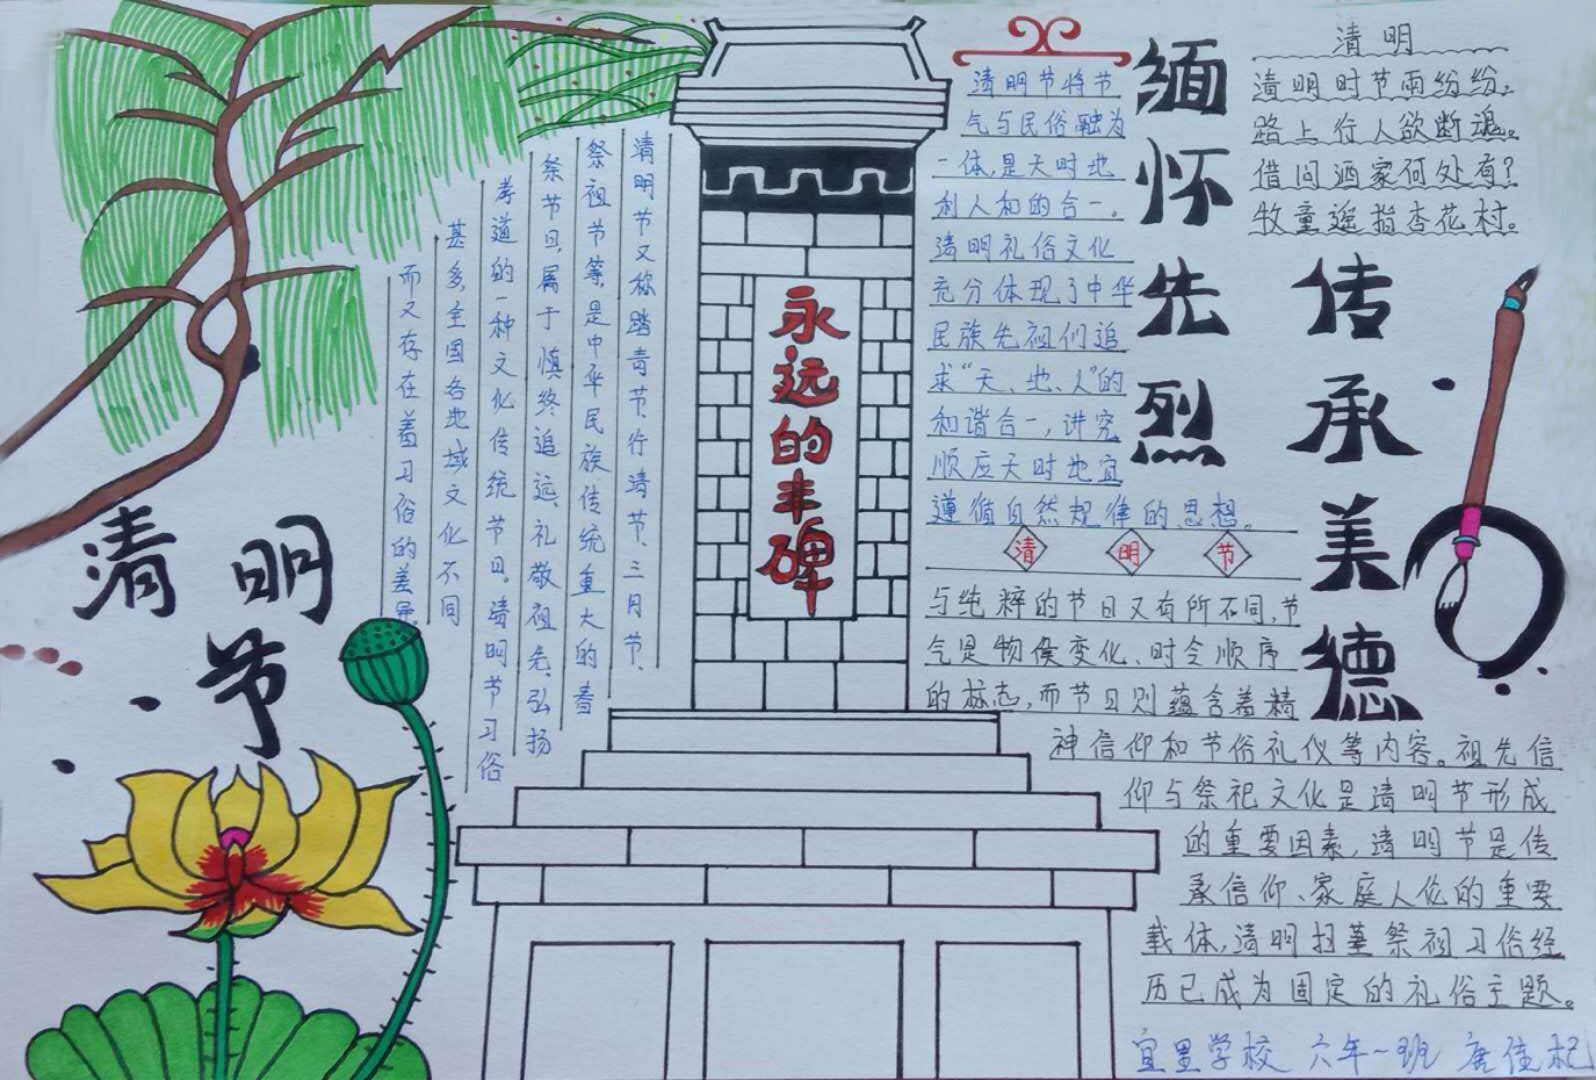 清明节
清明节又称踏青节、行清节、三月节、
祭祖节等,是中华民族传统重大的春
祭节日,属于慎终追远、礼敬祖先、弘扬
孝道的一种文化传统节日。清明节习俗
甚多,全国各地域文化不同
而又存在着习俗的差异
永远的丰碑
清明节将节
气与民俗融为
一体,是天时地
利人和的合一。
清明礼俗文化
充分体现了中华
民族先祖们追
求“天、地、人”的
和谐合一,讲究
顺应天时地宜
遵循自然规律的思想。
清 明 节
与纯粹的节日又有所不同,节
气是物侯变化、时令顺序
的标志,而节日则蕴含着精
神信仰和节俗礼仪等内容。祖先信
仰与祭祀文化是清明节形成
的重要因素,清明节是传
承信仰、家庭人伦的重要
载体,清明扫墓祭祖习俗经
历已成为固定的礼俗主题。
缅怀先烈
清明
清明时节雨纷纷,
路上行人欲断魂。
借问酒家何处有?
牧童遥指杏花村。
传承美德
宜里学校 六年一班 唐佳杞